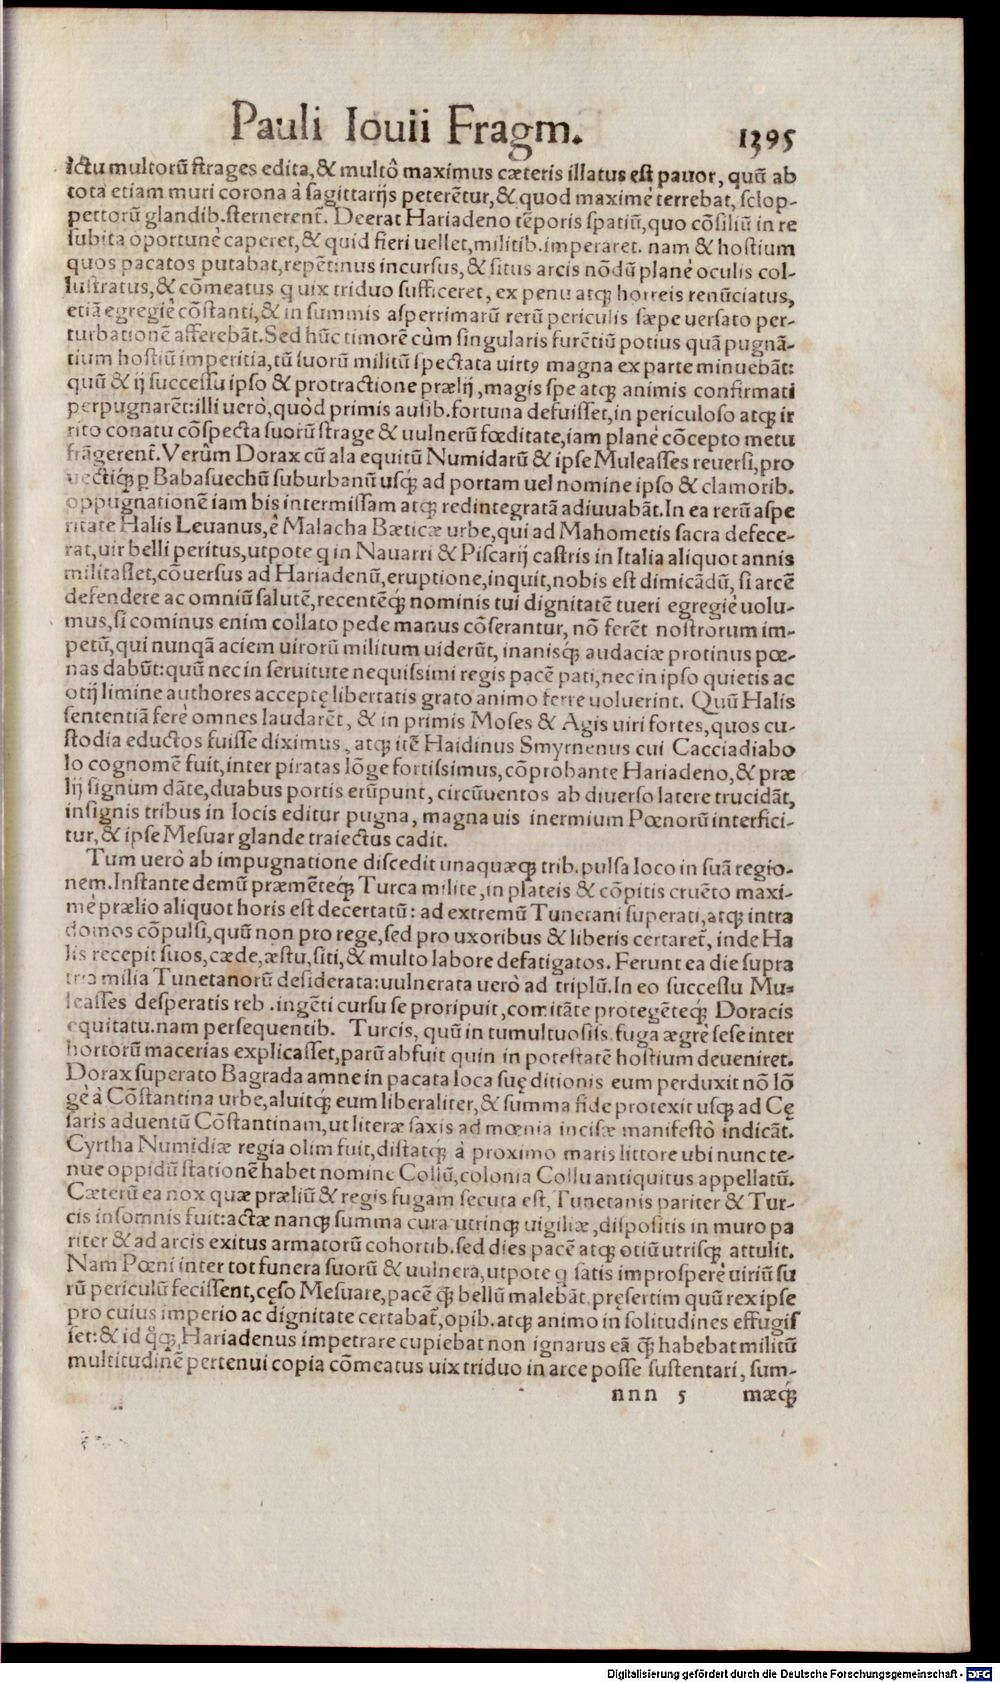 Pauli Iouii Fragm. 1395
ictu multorū ſtrages edita,& multò maximus cæteris illatus eſt pauor, quū ab
tota etiam muri corona à ſagittarijs peterētur,& quod maximè terrebat, ſclop-
pettorū glandib.ſternerent̃. Deerat Hariadeno tēporis ſpatiū,quo cōſiliū in re
ſubita oportunè caperet,& quid fieri uellet,militib.imperaret. nam & hoſtium
quos pacatos putabat,repētinus incurſus,& ſitus arcis nōdū planè oculis col-
luſtratus,& cōmeatus q uix triduo ſufficeret, ex penu atq; horreis renūciatus,
etiā egregiè cōſtanti,& in ſummis aſperrimarū rerū periculis ſæpe uerſato per-
turbationē afferebāt.Sed hūc timorē cùm ſingularis furētiū potius quā pugnā-
tium hoſtiū imperitia,tū ſuorū militū ſpectata uirtꝰ magna ex parte minuebāt:
quū & ij ſucceſſu ipſo & protractione prælij,magis ſpe atq; animis confirmati
perpugnarēt:illi uerò,quòd primis auſib.fortuna defuiſſet,in periculoſo atq; ir
rito conatu cōſpecta ſuorū ſtrage & uulnerū fœditate,iam planè cōcepto metu
frāgerent̃.Verùm Dorax cū ala equitū Numidarū & ipſe Muleaſſes reuerſi,pro
uectiq́; ꝑ Babaſuechū ſuburbanū uſq; ad portam uel nomine ipſo & clamorib.
oppugnationē iam bis intermiſſam atq; redintegratā adiuuabāt.In ea rerū aſpe
ritate Halis Leuanus,è Malacha Bæticæ urbe,qui ad Mahometis ſacra defece-
rat,uir belli peritus,utpote q in Nauarri & Piſcarij caſtris in Italia aliquot annis
militaſſet,cōuerſus ad Hariadenū,eruptione,inquit,nobis eſt dimicādū, ſi arcē
defendere ac omniū ſalutē,recentēq́; nominis tui dignitatē tueri egregiè uolu-
mus,ſi cominus enim collato pede manus cōſerantur, nō ferēt noſtrorum im-
petū,qui nunqā aciem uirorū militum uiderūt, inanisq́; audaciæ protinus pœ-
nas dabūt:quū nec in ſeruitute nequiſſimi regis pacē pati,nec in ipſo quietis ac
otij limine authores acceptę libertatis grato animo ferre uoluerint. Quū Halis
ſententiā ferè omnes laudarēt, & in primis Moſes & Agis uiri fortes,quos cu-
ſtodia eductos fuiſſe diximus, atq; itē Haidinus Smyrnenus cui Cacciadiabo
lo cognomē fuit,inter piratas lōge fortiſſimus,cōprobante Hariadeno,& præ
lij ſignum dāte,duabus portis erūpunt, circūuentos ab diuerſo latere trucidāt,
inſignis tribus in locis editur pugna, magna uis inermium Pœnorū interfici-
tur,& ipſe Meſuar glande traiectus cadit.
Tum uerò ab impugnatione diſcedit unaquæq; trib.pulſa loco in ſuā regio-
nem.Inſtante demū præmēteq́; Turca milite,in plateis & cōpitis cruēto maxi-
mè prælio aliquot horis eſt decertatū: ad extremū Tunetani ſuperati,atq; intra
domos cōpulſi,quū non pro rege,ſed pro uxoribus & liberis certaret̃, inde Ha
lis recepit ſuos,cæde,æſtu,ſiti,& multo labore defatigatos.Ferunt ea die ſupra
tria milia Tunetanorū deſiderata:uulnerata uerò ad triplū.In eo ſucceſſu Mu-
leaſſes deſperatis reb.ingēti curſu ſe proripuit,comitāte protegēteq́; Doracis
equitatu.nam perſequentib. Turcis, quū in tumultuoſiſs.fuga ægrè ſeſe inter
hortorū macerias explicaſſet,parū abfuit quin in poteſtatē hoſtium deueniret.
Dorax ſuperato Bagrada amne in pacata loca ſuę ditionis eum perduxit nō lō
ge à Cōſtantina urbe,aluitq; eum liberaliter,& ſumma fide protexit uſq; ad Cę
ſaris aduentū Cōſtantinam,ut literæ ſaxis ad mœnia inciſæ manifeſtò indicāt.
Cyrtha Numidiæ regia olim fuit,diſtatq́; à proximo maris littore ubi nunc te-
nue oppidū ſtationē habet nomine Collū,colonia Collu antiquitus appellatū.
Cæterū ea nox quæ præliū & regis fugam ſecuta eſt, Tunetanis pariter & Tur-
cis inſomnis fuit:actæ nanq; ſumma cura utrinq; uigiliæ,diſpoſitis in muro pa
riter & ad arcis exitus armatorū cohortib.ſed dies pacē atq; otiū utriſq; attulit.
Nam Pœni inter tot funera ſuorū & uulnera,utpote q ſatis improſperè uiriū ſu
rū periculū feciſſent,cęſo Meſuare,pacē q̄; bellū malebāt,pręſertim quū rex ipſe
pro cuius imperio ac dignitate certabat̃,opib.atq; animo in ſolitudines effugiſ
ſet:& id q̊q;,Hariadenus impetrare cupiebat non ignarus eā q̄; habebat militū
multitudinē pertenui copia cōmeatus uix triduo in arce poſſe ſuſtentari, ſum-
nnn 5 mæq́;
Digitalisierung gefördert durch die Deutsche Forschungsgemeinschaft - DFG